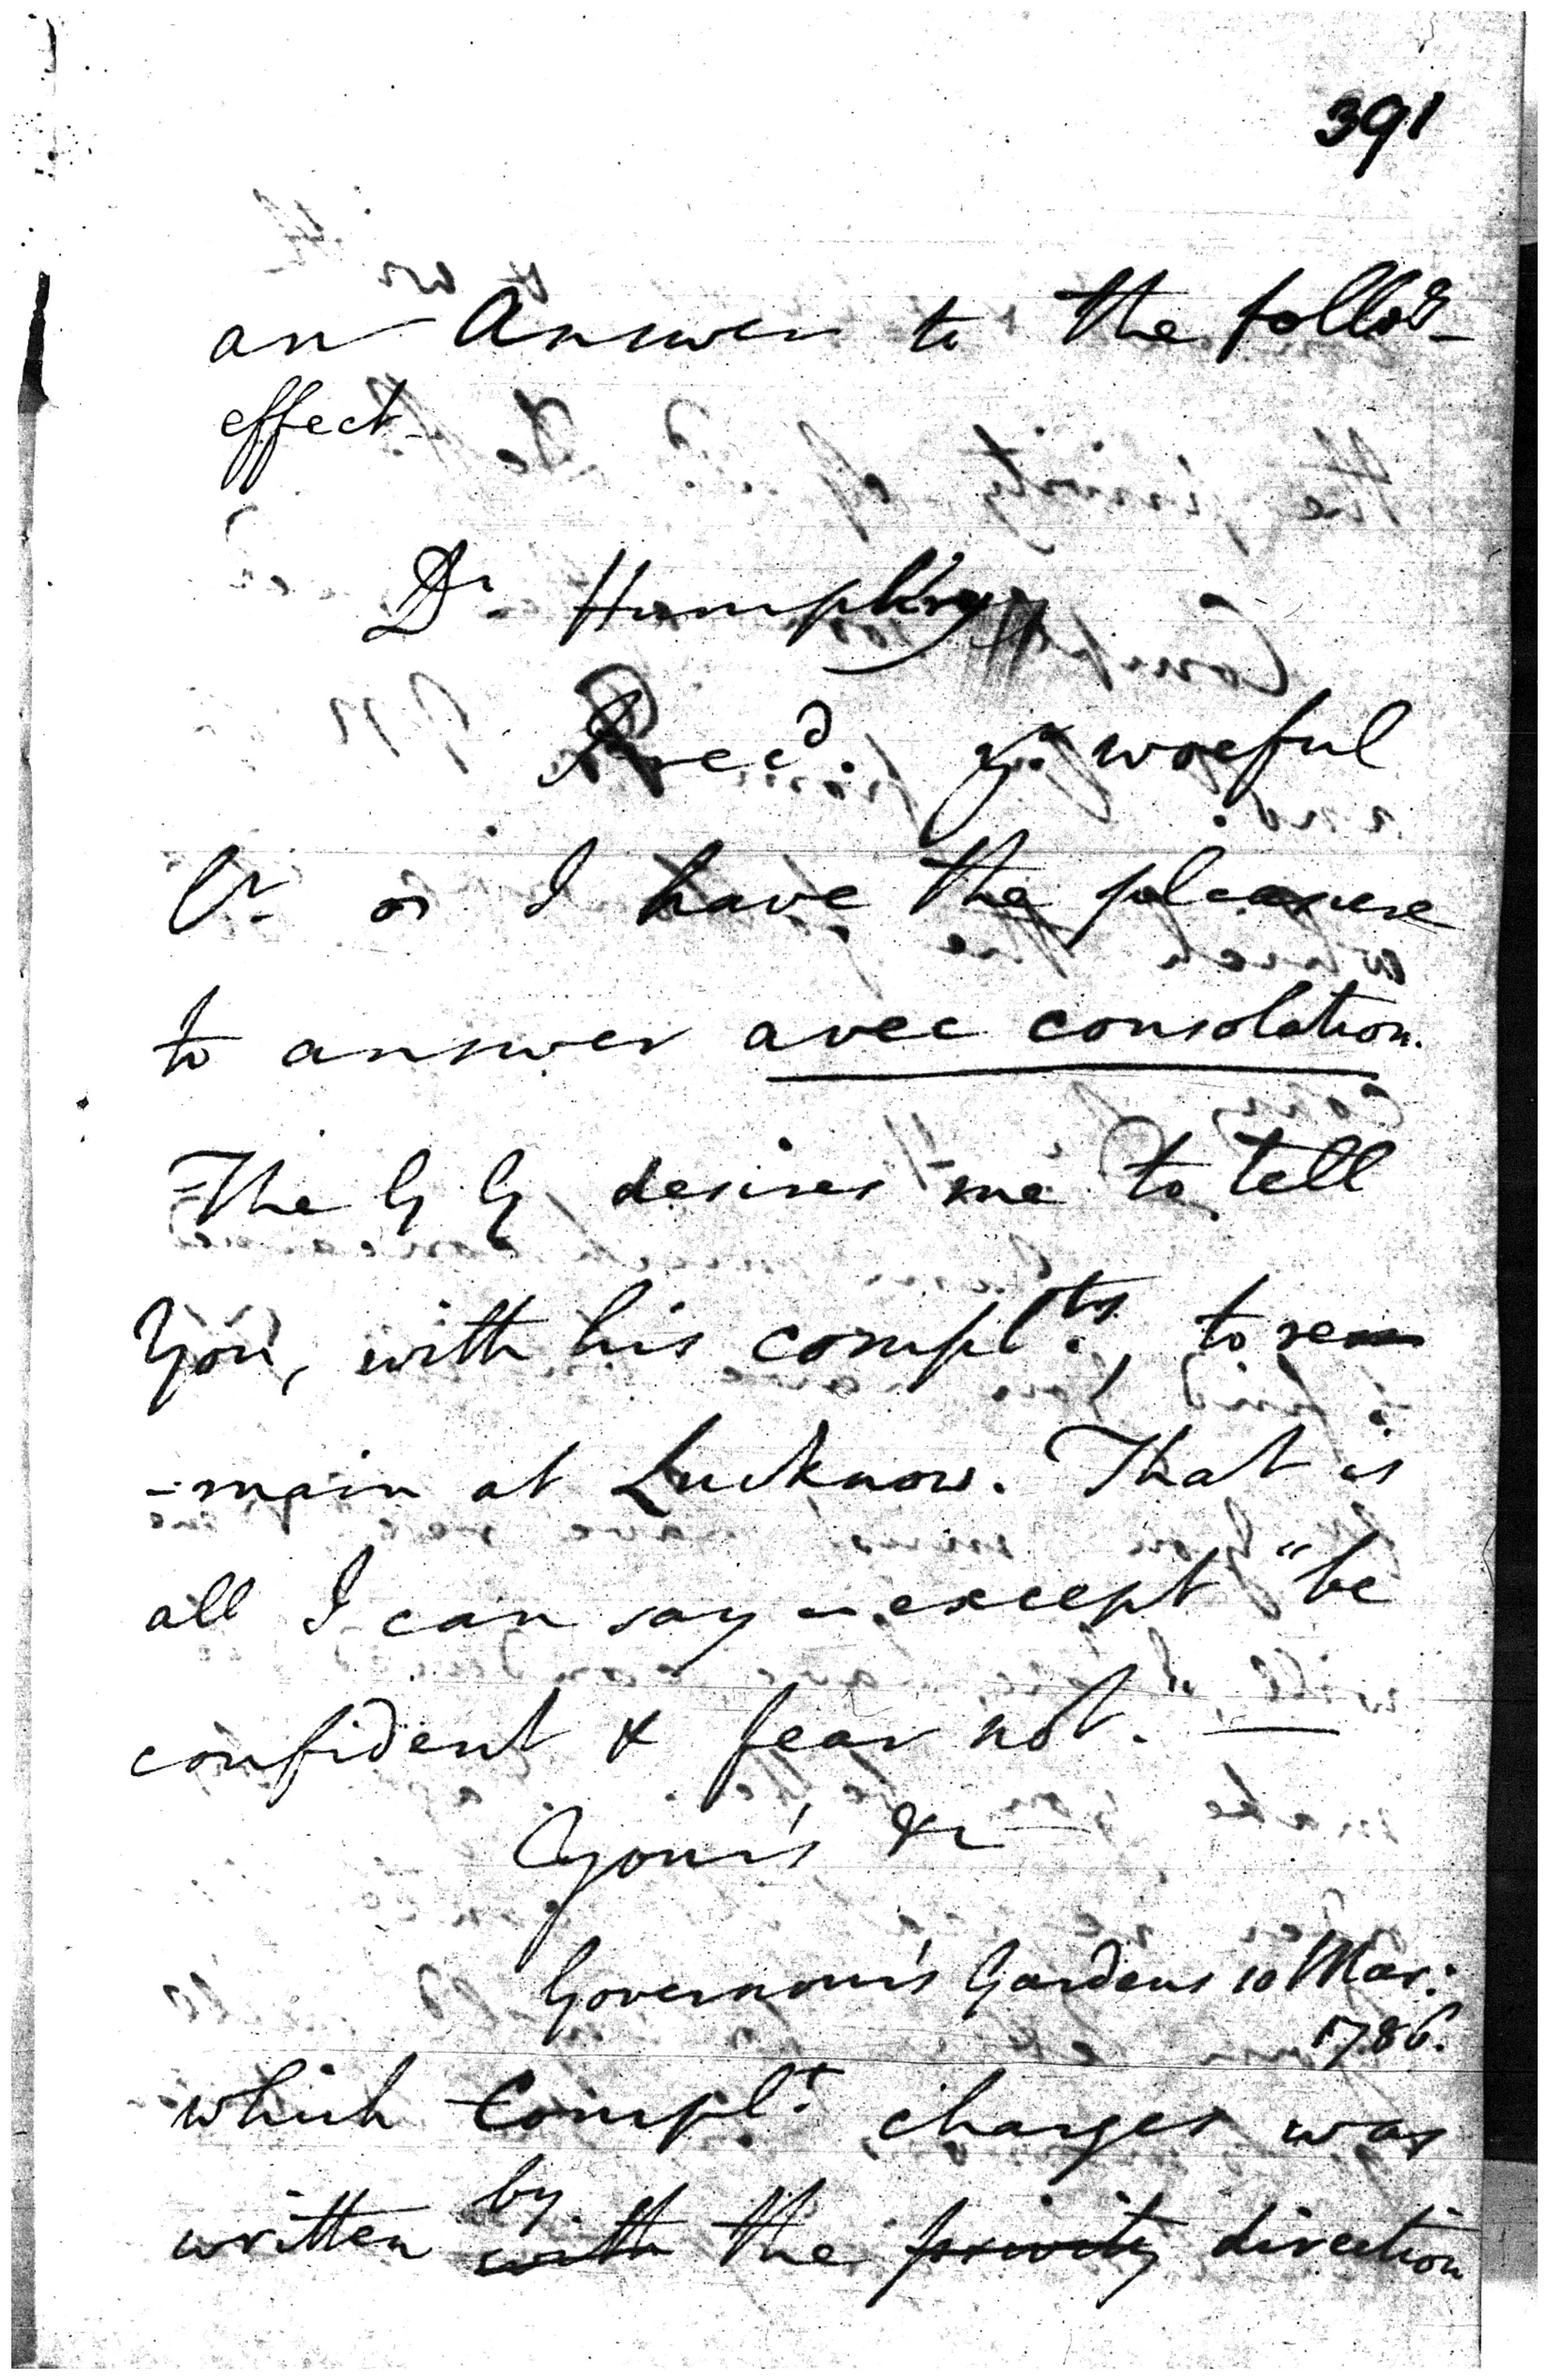 391
an Answer to the follog
effect
Dr. Humphry
Recd. yr. woeful
Lr. & I have the pleasure
to answer avec consolation.
The G G desires me to tell
You, with his complts., to re
-main at Lucknow. That is
all I can say - except "be
confident & fear not." —
Your's &c
Governour's Gardens 10 Mar:
1786.
which Complt. charges was
by
written with the privity direction